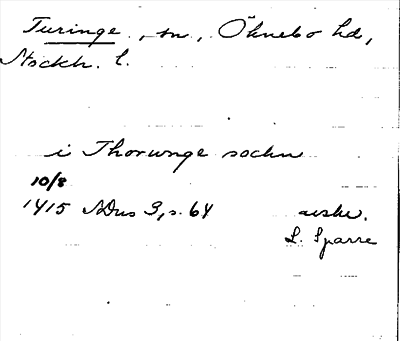 Turinge, sn, Öknebo hd,
Stockh. l.
i Thorunge sochn
10/8
1415 SDns 3, s. 64 avskr.
L. Sparre